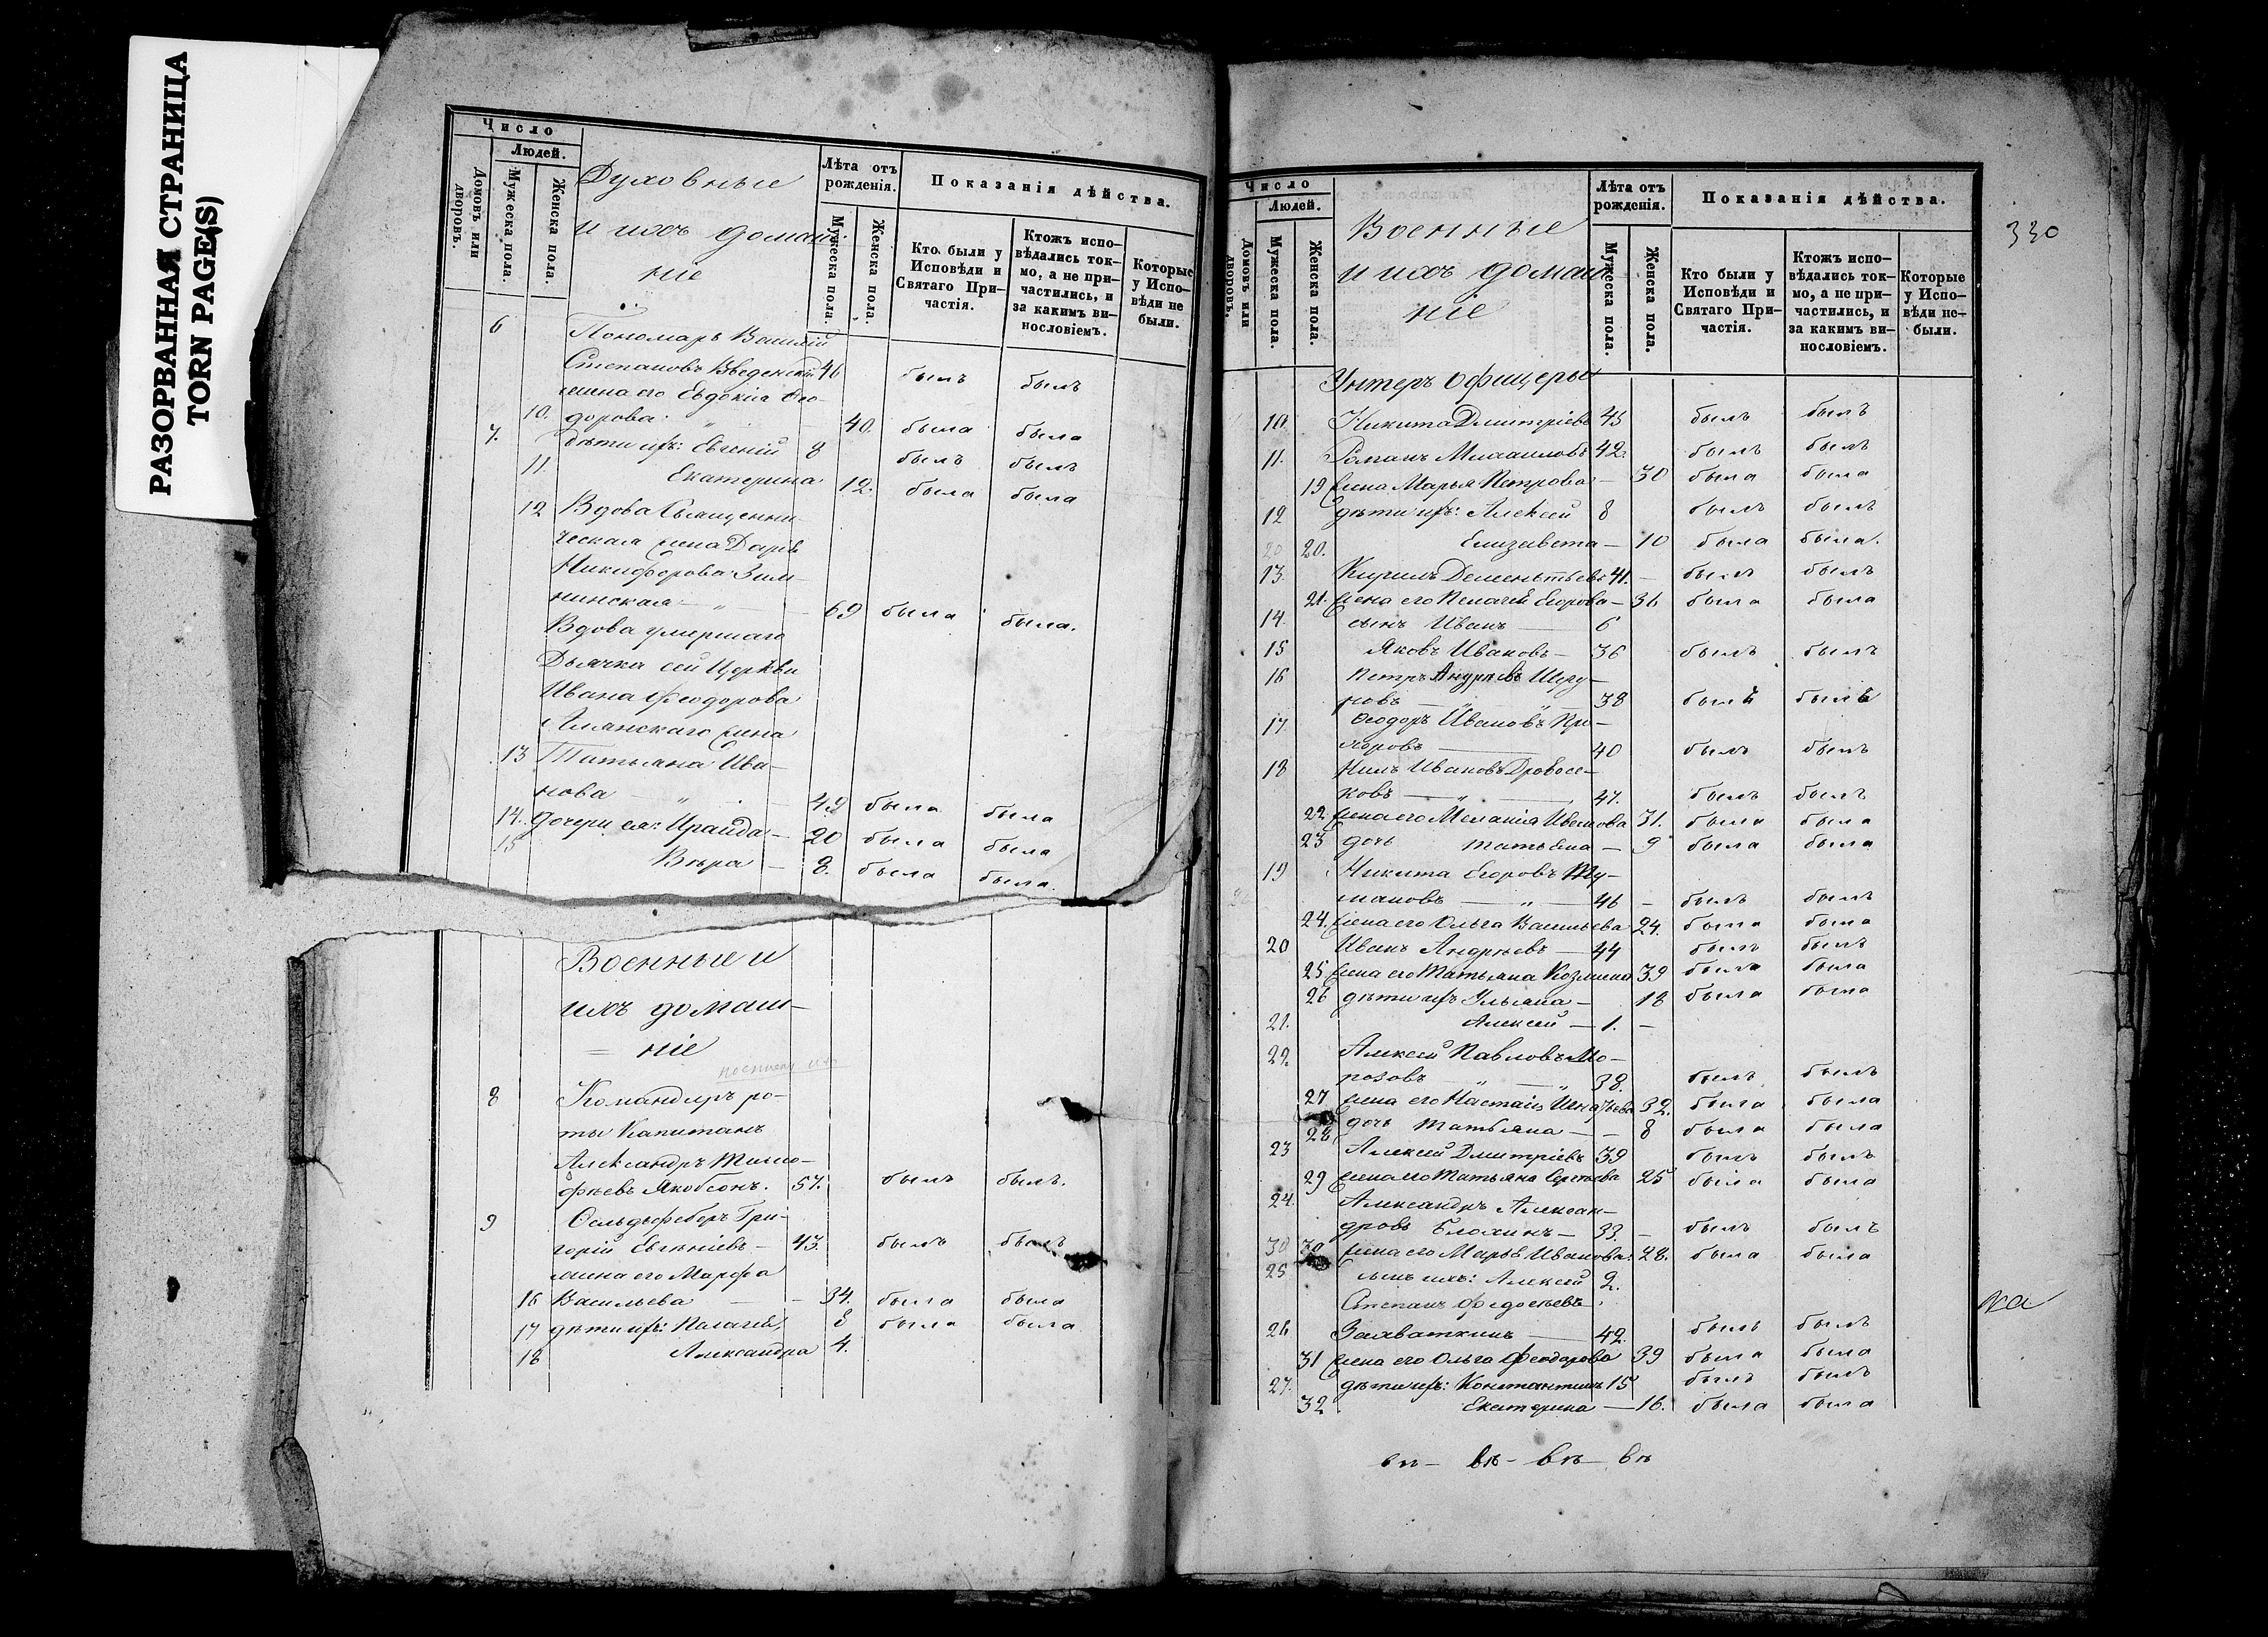 РАЗОРВАННАЯ СТРАНИЦА
TORN PAGE(S)
Число
Людей.
Домовъ или дворовъ.
Мужеска пола.
Женска пола.
Духовные
и ихъ домаш-
ніе
Лѣта отъ рожденія.
Мужеска пола.
Женска пола.
Показанія дѣйства.
Кто были у Исповѣди и Святаго При-частія.
Ктожъ испо-вѣдались ток-мо, а не при-частились, и за какимъ ви-нословіемъ.
Которые у Испо-вѣди не были.
6 Пономарь Василій
Степановъ Введенскій 46 былъ былъ
жена его Евдокія Ѳео-
10. дорова " 40. была была
7. дѣти ихъ: Евгеній 8 былъ былъ
11. Екатерина 12. была была
12 Вдова Священни-
ческая жена Дарія
Никифорова Зим-
нинская " 69 была была.
Вдова умершаго
Дьячка сей Церкви
Ивана Феодорова
жена
13 Татьяна Ива-
нова " 49 была была
14. дочери ея: Ираида 20 была была
15 Вѣра 8. была была.
Военные и
ихъ домаш-
= ніе
8 Командиръ ро-
ты Капитанъ
Александръ Тимо-
фѣевъ Якобсонъ. 57. былъ былъ.
9 Фельдфебель Гри-
горій Евгеніевъ 43. былъ былъ
жена его Марфа
16 Васильева 34. была была
17 дѣти ихъ: Пелагея 8 была была
18 Александра 4.
330
Число
Людей.
Домовъ или дворовъ.
Мужеска пола.
Женска пола.
Военные
и ихъ домаш-
ніе
Лѣта отъ рожденія.
Мужеска пола.
Женска пола.
Показанія дѣйства.
Кто были у Исповѣди и Святаго При-частія.
Ктожъ испо-вѣдались ток-мо, а не при-частились, и за какимъ ви-нословіемъ.
Которые у Испо-вѣди не-были.
Унтеръ офицеры
10. Никита Дмитріевъ 45 былъ былъ
11. Романъ Михаиловъ 42. былъ былъ
19 жена Марья Петрова 30 была была
12 дѣти ихъ: Алексей 8 былъ былъ
20 20. Елизавета 10 была была.
13. Кирилъ Дементьевъ 41. былъ былъ
21. жена его Пелагея Егорова 36 была была
14. сынъ Иванъ 6
15 Яковъ Ивановъ 36 былъ былъ
16 Петръ Андреевъ Шуру-
повъ " 38 былъ былъ
17. Ѳеодоръ Ивановъ При-
40 былъ былъ
18 Нилъ Ивановъ Дровосе-
ковъ " 47. былъ былъ
22. жена его Меланія Иванова 31. была была
23 дочь Татьяна 9 была была
19 Никита Егоровъ Ту-
мановъ " 46 былъ былъ
24. жена его Ольга Васильева 24. была была
20 Иванъ Андреевъ 44 былъ былъ
25 жена его Татьяна Козмина 39 была была
26 дѣти ихъ Ульяна 18 была была
21. Алексей 1.
22. Алексей Павловъ Мо-
розовъ " " 38. былъ былъ
27 жена его Настасія 32. была была
28 дочь Татьяна 8 была была
23 Алексей Дмитріевъ 39 былъ былъ
29 жена его Татьяна Сергеева 25 была была
24. Александръ Алексан-
дровъ Блохинъ 33. былъ былъ
30 30 жена его Марья Иванова 28. была была
25 сынъ ихъ: Алексей 2.
Степанъ Федосеевъ
26 Захваткинъ 42. былъ былъ
31 жена его Ольга Феодорова 39 была была
27. дѣти ихъ: Константинъ 15 былъ былъ
32. Екатерина 16. была была
на